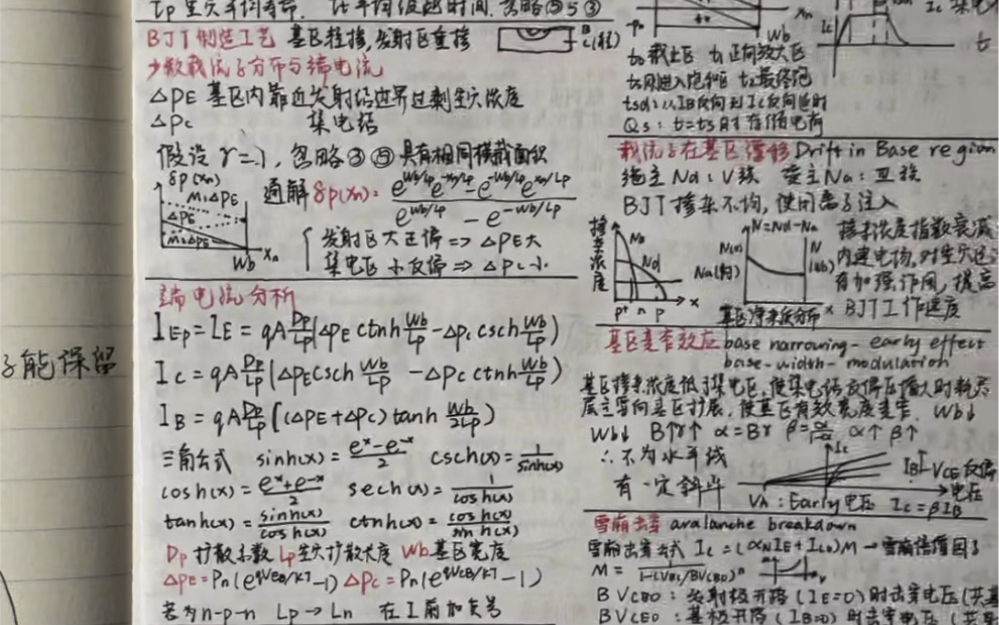 τp 空穴平均寿命. τt 平均渡越时间. 忽略⑤与③
BJT制造工艺 基区轻掺,发射区重掺
B
C(衬)
少数载流子分布与端电流
△PE 基区内靠近发射结边界过剩空穴浓度
△Pc 集电结
假设 γ=1, 忽略③⑤具有相同横截面积
δp(xn)
M1△PE
△PE
M2△PE
Wb
xn
通解 δp(xn)=
发射区大正偏 => △PE大
集电区小反偏 => △Pc小
端电流分析
IEp=IE = qA Dp/Lp (△PE ctnh Wb/Lp - △Pc csch Wb/Lp)
Ic = qA Dp/Lp (△PE csch Wb/Lp - △Pc ctnh Wb/Lp)
IB = qA Dp/Lp [(△PE+△Pc) tanh Wb/2Lp)
三角公式 sinh(x) = (e^x - e^-x)/2 csch(x) = 1/sinh(x)
cosh(x) = (e^x + e^-x)/2 sech(x) = 1/cosh(x)
tanh(x) = sinh(x)/cosh(x) ctnh(x) = cosh(x)/sinh(x)
Dp 扩散系数 Lp空穴扩散长度 Wb基区宽度
△PE = Pn(e^qVEB/KT - 1) △Pc = Pn(e^qVCB/KT - 1)
若为n-p-n Lp → Ln 在I前加负号
子能保留
Wb
xn
Ic
t
t0 截止区 t1正向放大区
tsd: 从IB反向到Ic反向延时
Qs: t=ts时存储电荷
载流子在基区漂移 Drift in Base region
施主Nd: V族 受主Na: Ⅲ族
BJT掺杂不均,使用离子注入
掺杂浓度
Na
Nd
p+ n p
x
N=Nd-Na
基区净杂质分布
x
掺杂浓度指数衰减
内建电场,对空穴运
有加强作用,提高
BJT工作速度
基区变窄效应 base narrowing - early effect
base-width-modulation
基区掺杂浓度低于集电区,使集电结反偏压增大时耗尽
层主要向基区扩展,使基区有效宽度变窄. Wb↓
Wb↓ B↑γ↑ α=Bγ β=α/(1-α) α↑ β↑
∴不为水平线
有一定斜率
Ic
IB
VCE反偏
电压
VA: Early电压 Ic=βIB
雪崩击穿 avalanche breakdown
雪崩击穿公式 Ic = (αNIE+Ico)M → 雪崩倍增因子
M = 1/(1-(VBC/BVCBO)^n)
BVCBO: 发射极开路 (IE=0) 时击穿电压(共基
BVCEO: 基极开路 (IB=0) 时击穿电压 (共